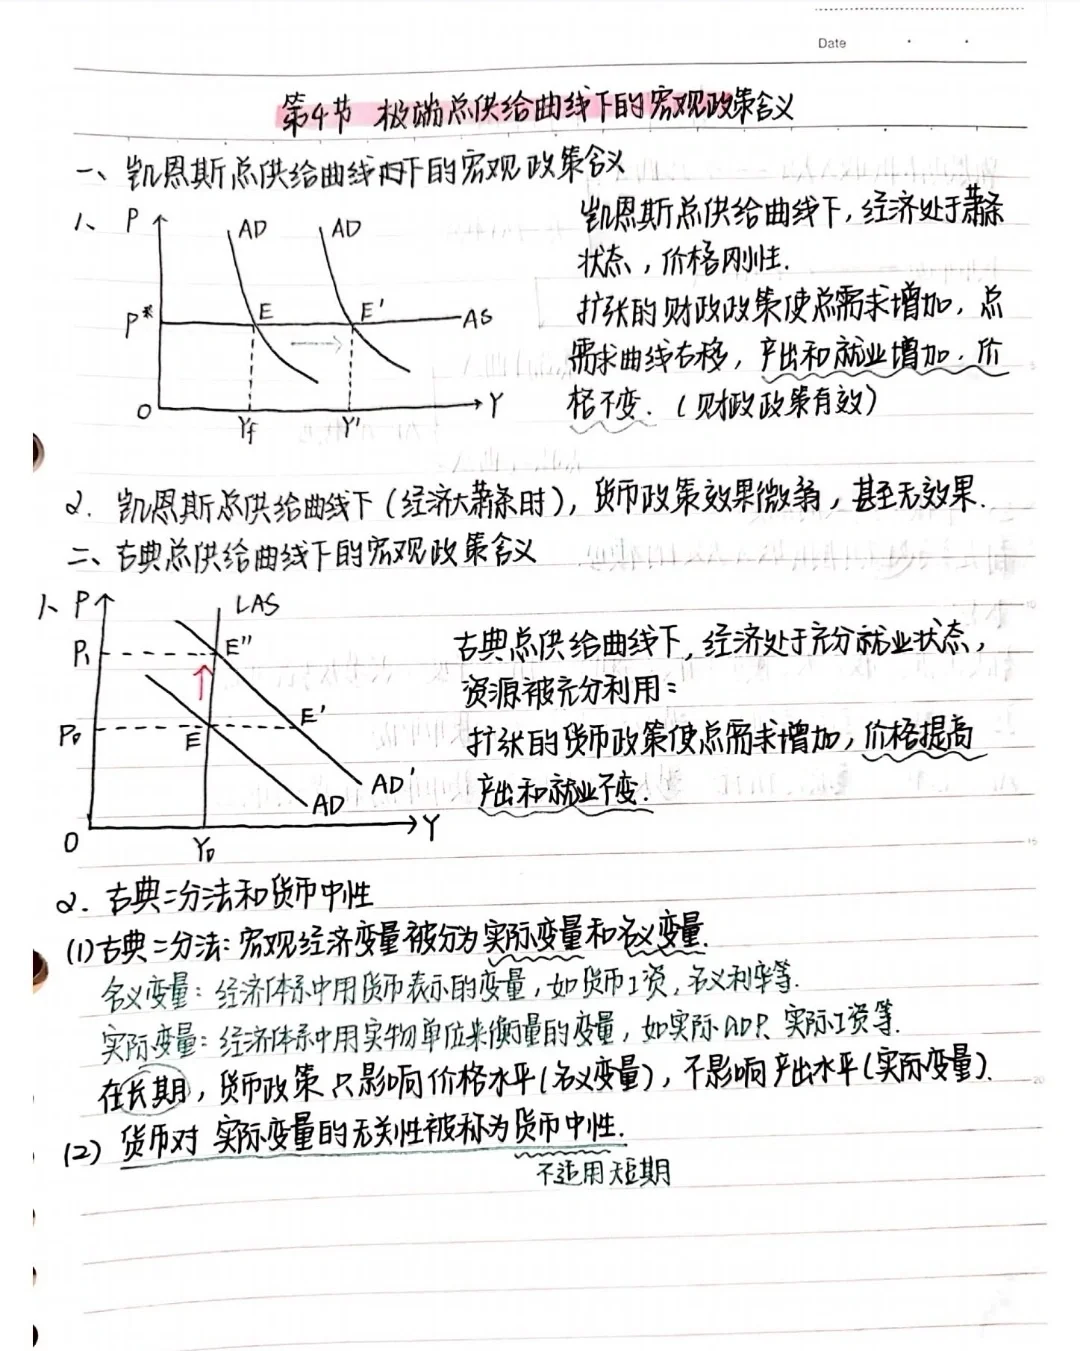 Date
第4节 极端总供给曲线下的宏观政策含义
一、凯恩斯总供给曲线下的宏观政策含义
1、
P
AD
AD
P*
E
E'
AS
O
Yf
Y'
Y
凯恩斯总供给曲线下，经济处于萧条
状态，价格刚性.
扩张的财政政策使总需求增加，总
需求曲线右移，产出和就业增加，价
格不变.（财政政策有效）
2. 凯恩斯总供给曲线下（经济大萧条时），货币政策效果微弱，甚至无效果.
二、古典总供给曲线下的宏观政策含义
1、
P
LAS
P₁
E''
P₀
E
E'
AD'
AD
O
Y₀
Y
古典总供给曲线下，经济处于充分就业状态，
资源被充分利用：
扩张的货币政策使总需求增加，价格提高
产出和就业不变.
2. 古典二分法和货币中性
(1)古典二分法：宏观经济变量被分为实际变量和名义变量.
名义变量：经济体系中用货币表示的变量，如货币工资，名义利率等.
实际变量：经济体系中用实物单位来衡量的变量，如实际GDP、实际工资等.
在长期，货币政策只影响价格水平(名义变量)，不影响产出水平(实际变量).
(2) 货币对实际变量的无关性被称为货币中性.
不适用短期